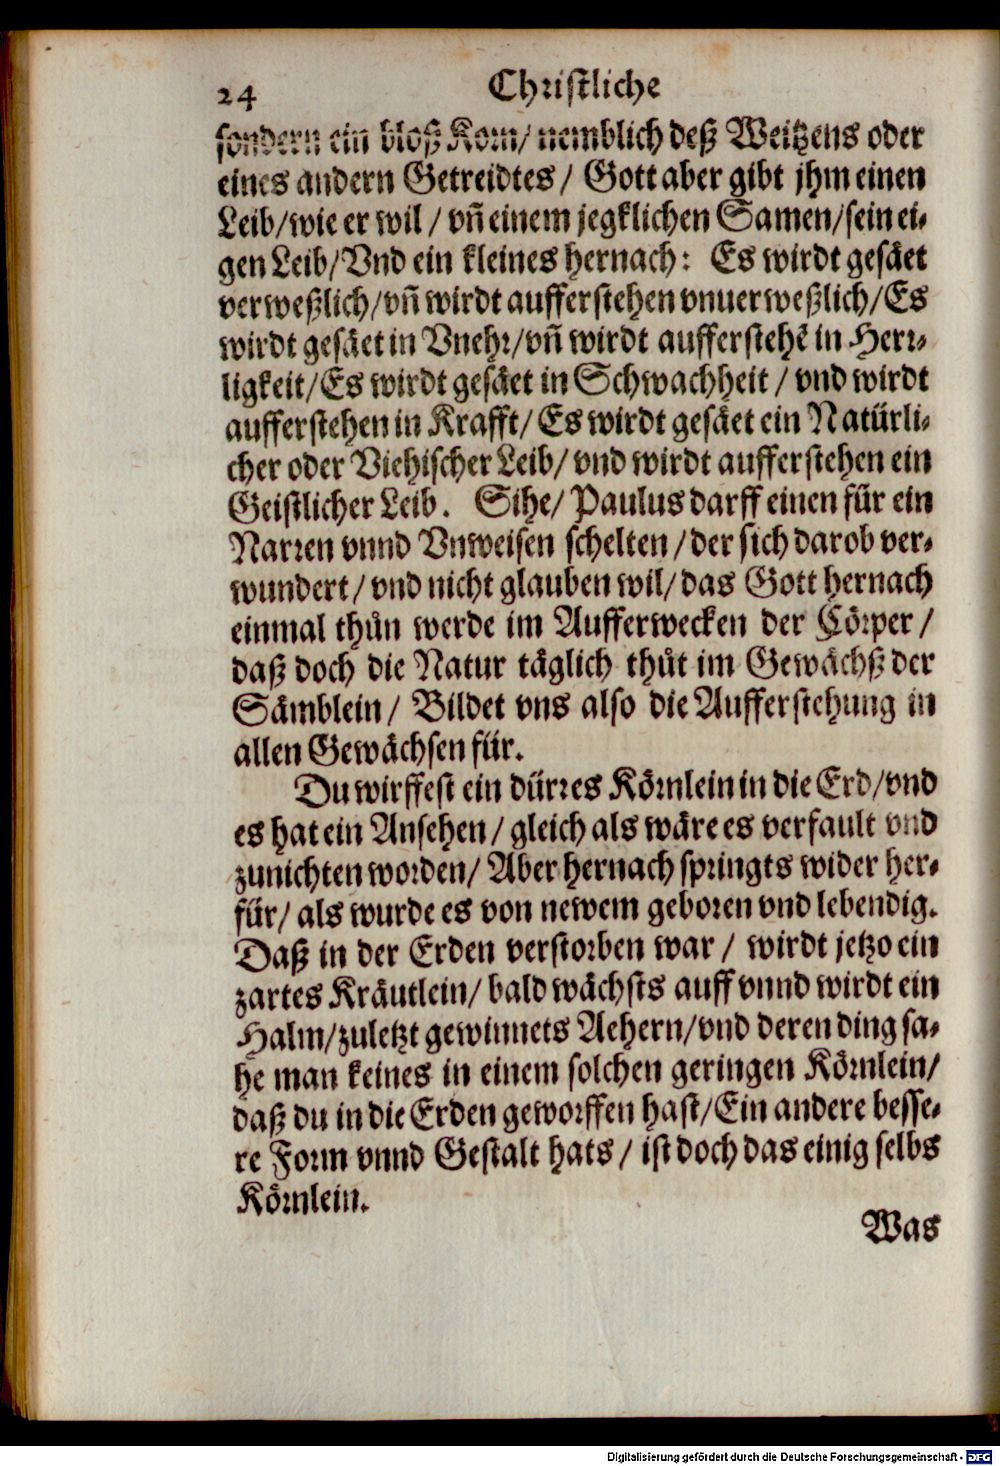 24 Christliche
sondern ein bloß Korn/ nemblich deß Weitzens oder
eines andern Getreidtes/ Gott aber gibt jhm einen
Leib/wie er wil/ vñ einem jegklichen Samen/sein ei-
gen Leib/Vnd ein kleines hernach: Es wirdt gesäet
verweßlich/vñ wirdt aufferstehen vnuerweßlich/Es
wirdt gesäet in Vnehr/vñ wirdt aufferstehẽ in Herr-
ligkeit/Es wirdt gesäet in Schwachheit/ vnd wirdt
aufferstehen in Krafft/ Es wirdt gesäet ein Natürli-
cher oder Viehischer Leib/ vnd wirdt aufferstehen ein
Geistlicher Leib. Sihe/ Paulus darff einen für ein
Narren vnnd Vnweisen schelten/der sich darob ver-
wundert/ vnd nicht glauben wil/ das Gott hernach
einmal thůn werde im Aufferwecken der Cörper/
daß doch die Natur täglich thůt im Gewächß der
Sämblein/ Bildet vns also die Aufferstehung in
allen Gewächsen für.
Du wirffest ein dürres Körnlein in die Erd/vnd
es hat ein Ansehen/ gleich als wäre es verfault vnd
zunichten worden/ Aber hernach springts wider her-
für/ als wurde es von newem geboren vnd lebendig.
Daß in der Erden verstorben war/ wirdt jetzo ein
zartes Kräutlein/ bald wächsts auff vnnd wirdt ein
Halm/zuletzt gewinnets Aehern/vnd deren ding sa-
he man keines in einem solchen geringen Körnlein/
daß du in die Erden geworffen hast/Ein andere besse-
re Form vnnd Gestalt hats/ ist doch das einig selbs
Körnlein.
Was
Digitalisierung gefördert durch die Deutsche Forschungsgemeinschaft - DFG